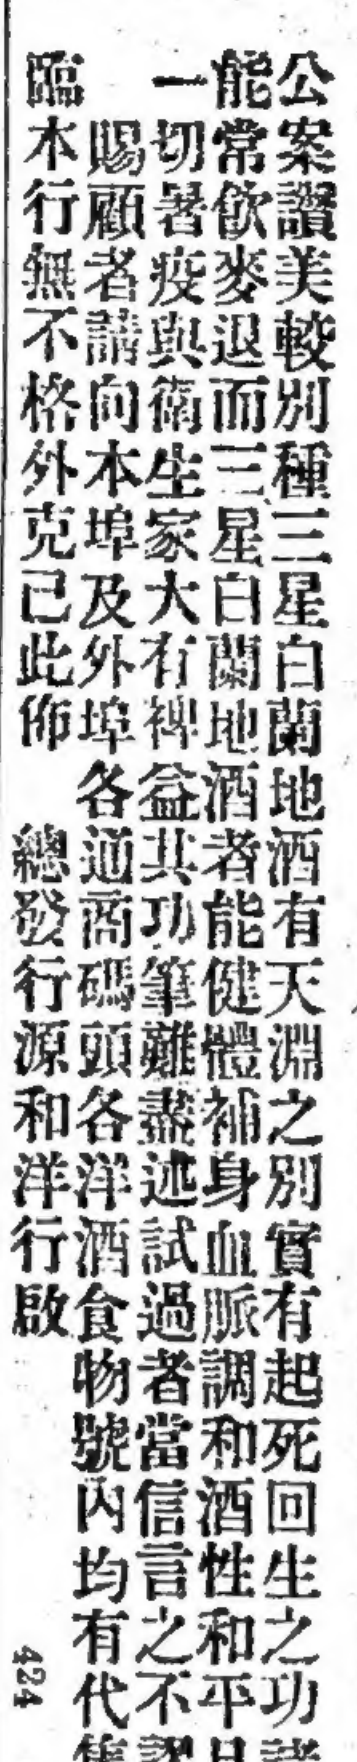 公案讚美較別種三星白蘭地酒有天淵之別實有起死回生之功諸
能常飲麥退而三星白蘭地酒者能健體補身血脈調和酒性和平且
一切暑疫與衛生家大有裨益其功筆難盡述試過者當信言之不謬
賜顧者請向本埠及外埠各通商碼頭各洋酒食物號內均有代售
臨本行無不格外克己此佈 總發行源和洋行啟
424